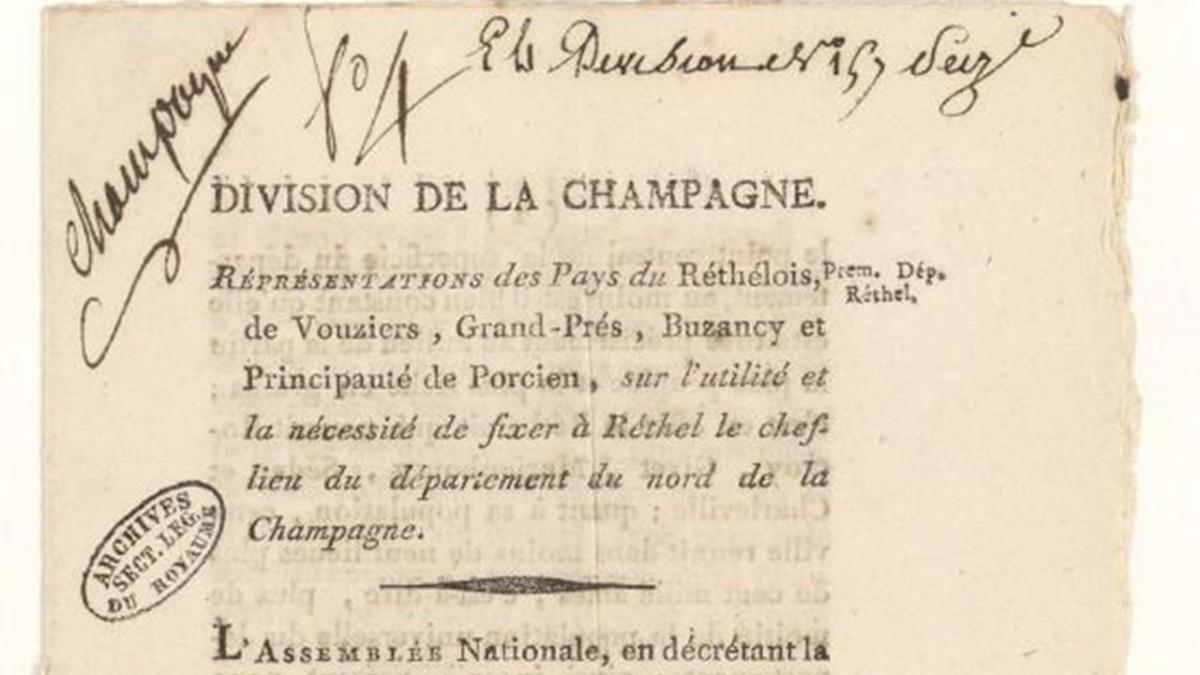 Champagne
DIVISION DE LA CHAMPAGNE.
RÉPRÉSENTATIONS des Pays du Réthélois,
Prem. Dép.
Réthel.
de Vouziers , Grand-Prés , Buzancy et
Principauté de Porcien , sur l'utilité et
la nécessité de fixer à Réthel le chef-
lieu du département du nord de la
Champagne.
ARCHIVES
SECT. LEG.
DU ROYAUME
L'ASSEMBLÉE Nationale, en décrétant la